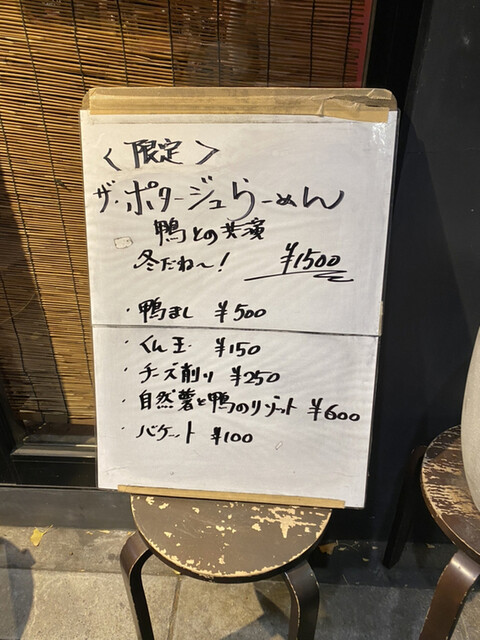 〈限定〉
ザ・ポタージュらーめん
鴨との共演
冬だね〜! ¥1500
・鴨まし ¥500
・くん玉 ¥150
・チーズ削り ¥250
・自然薯と鴨のリゾット ¥600
・バケット ¥100